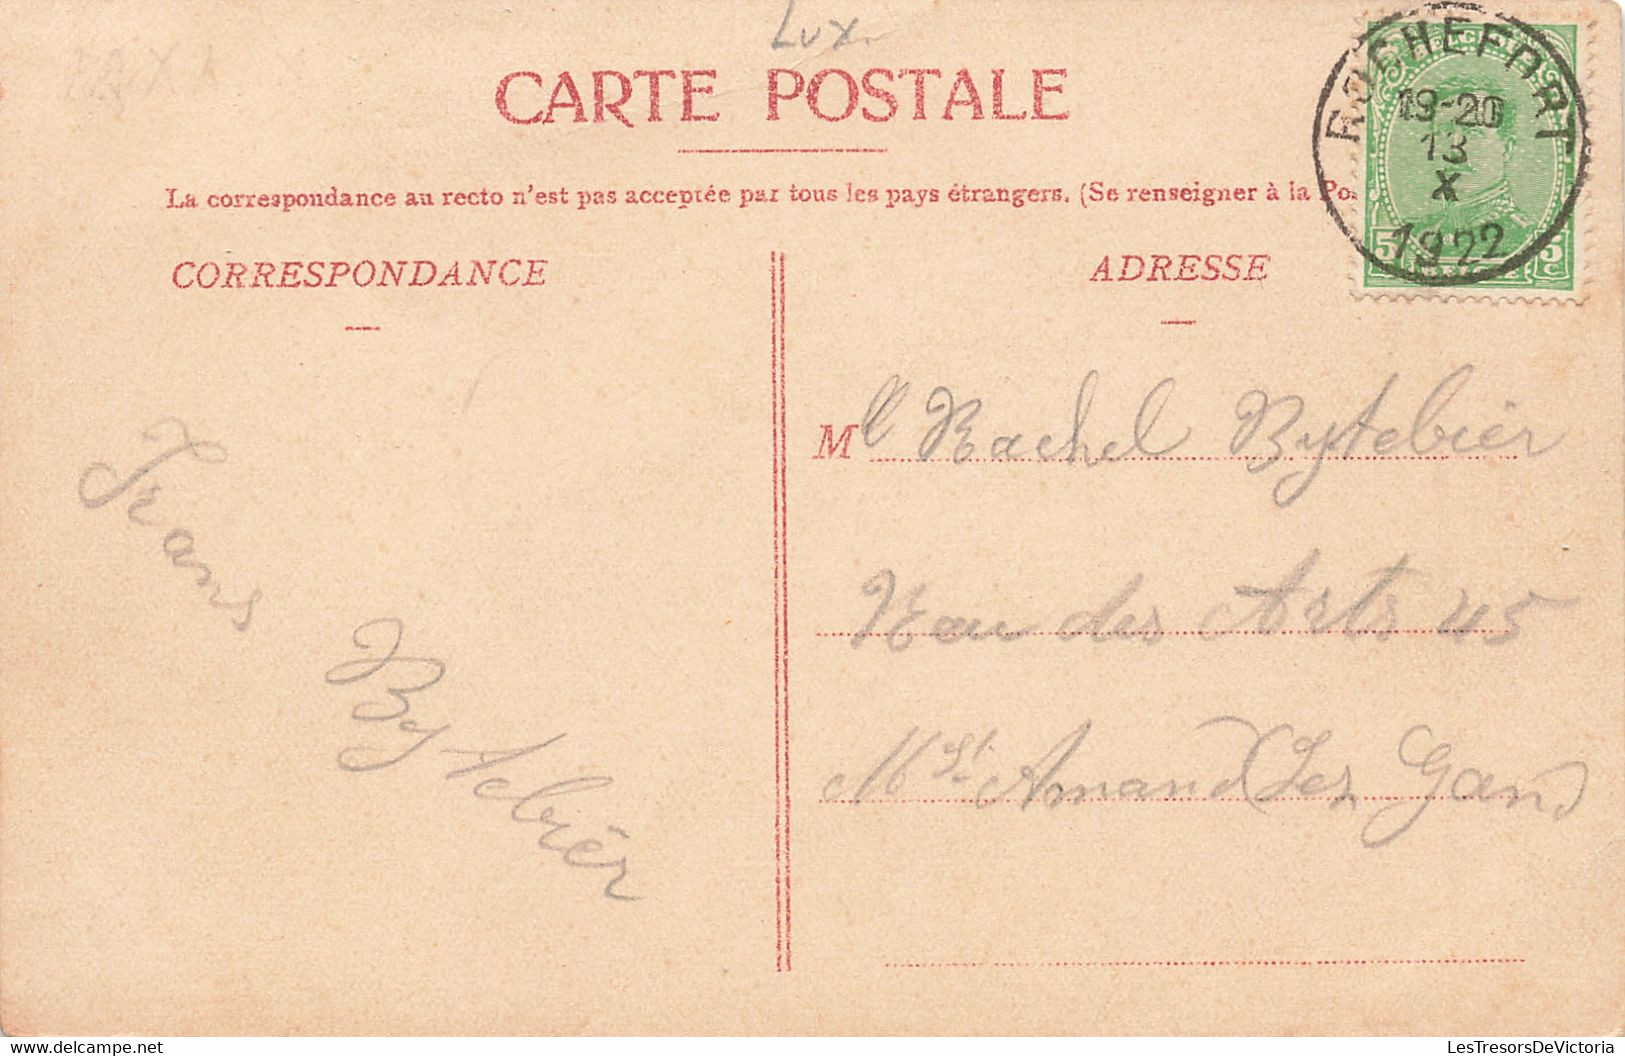 Lux.
CARTE POSTALE
La correspondance au recto n'est pas acceptée par tous les pays étrangers. (Se renseigner à la Pos
ROCHEFORT
19-20
13
X
1922
BELGIË
5 5
c.
CORRESPONDANCE
ADRESSE
Frans
Bytebier
Ml Rachel Bytebier
des Arts 45
Mt St Amand Lez Gand
LesTresorsDeVictoria